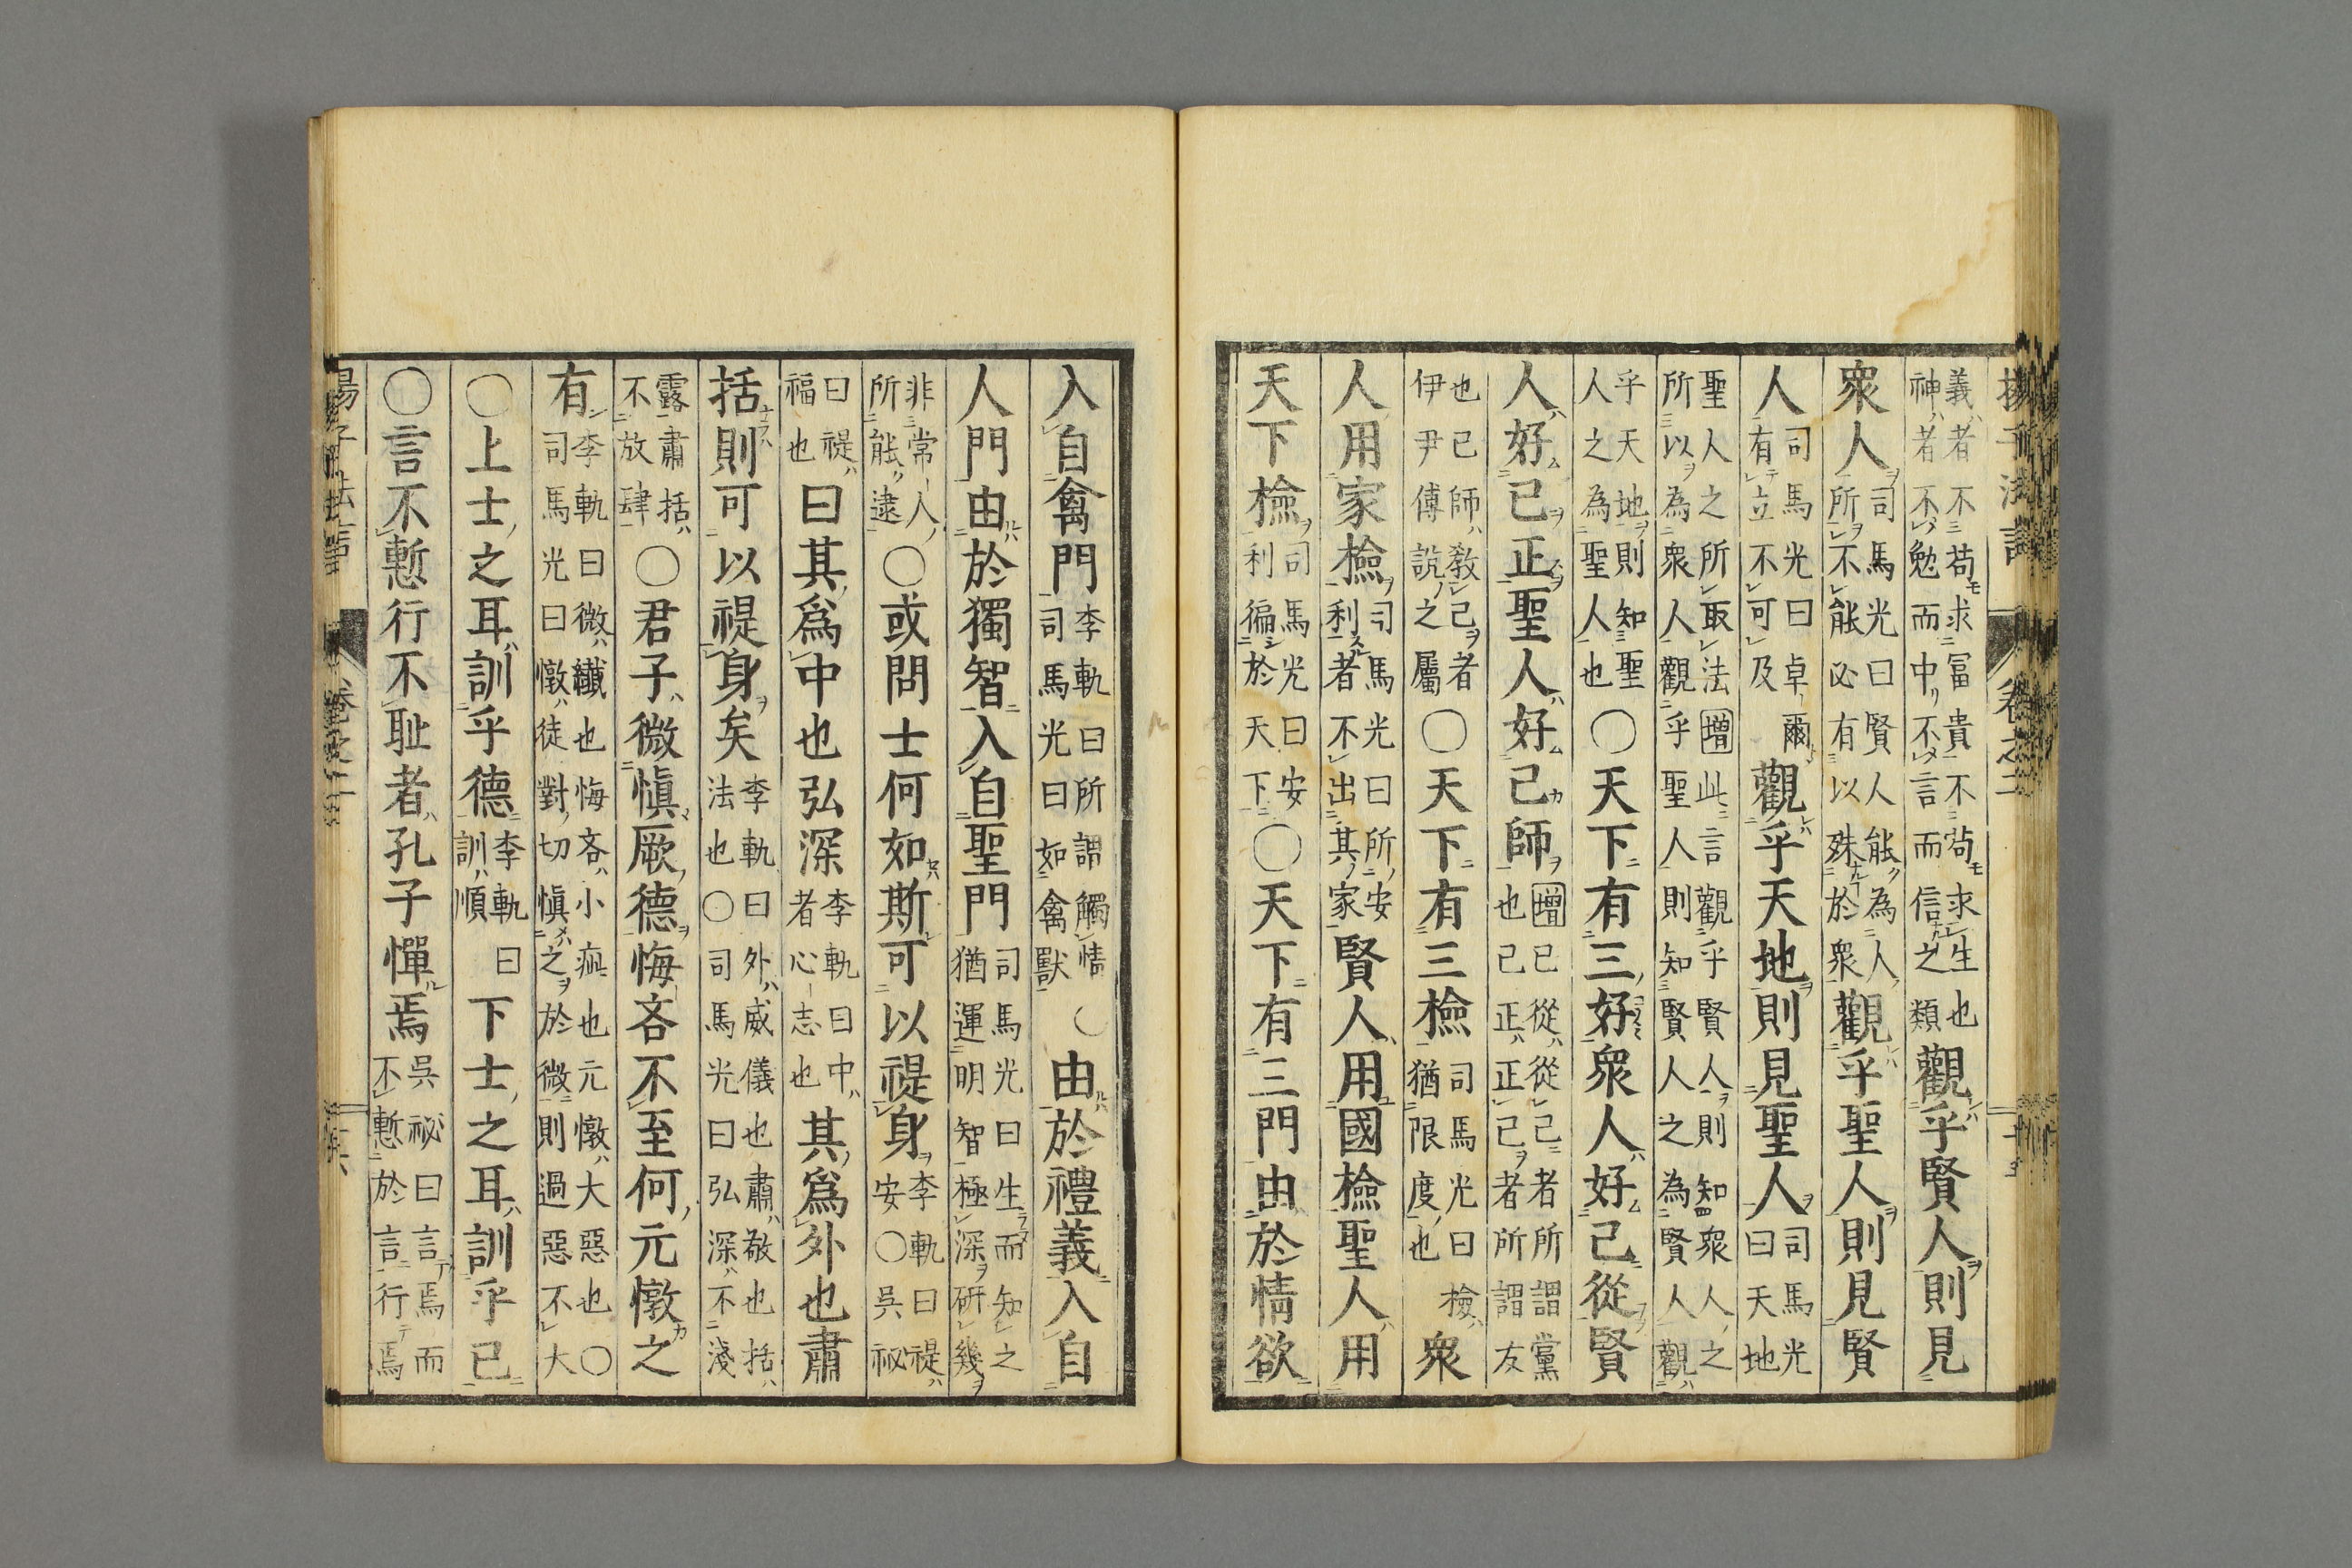 義者不苟求冨貴不苟求生也
神者不勉而中不言而信之類觀乎賢人則見
衆人司馬光曰賢人能為人
所不能必有以殊於衆人觀乎聖人則見賢
人司馬光曰卓爾
有立不可及觀乎天地則見聖人司馬光
曰天地
聖人之所取法增此言觀乎賢人則知衆人之
所以為衆人觀乎聖人則知賢人之為賢人觀
乎天地則知聖
人之為聖人也〇天下有三好衆人好己從賢
人好己正聖人好己師增己從從己者所謂黨
也己正正己者所謂友
也己師敎己者
伊尹傅說之屬〇天下有三檢司馬光曰檢
猶限度也衆
人用家檢司馬光曰所安
利者不出其家賢人用國檢聖人用
天下檢司馬光曰安
利徧於天下〇天下有三門由於情欲
入自禽門李軌曰所謂觸情
司馬光曰如禽獸〇由於禮義入自
人門由於獨智入自聖門司馬光曰生而知之
猶運明智極深研幾
非常人
所能逮〇或問士何如斯可以禔身李軌曰禔
安〇吳祕
曰禔
福也曰其爲中也弘深李軌曰中
者心志也其爲外也肅
括則可以禔身矣李軌曰外威儀也肅敬也括
法也〇司馬光曰弘深不淺
露肅括
不放肆〇君子微愼厥德悔吝不至何元憞之
有李軌曰微纎也悔吝小疵也元憞大惡也〇
司馬光曰憞徒對切愼之於微則過惡不大
〇上士之耳訓乎德李軌曰
訓順下士之耳訓乎己
〇言不慙行不耻者孔子憚焉吳祕曰言焉而
不慙於言行焉